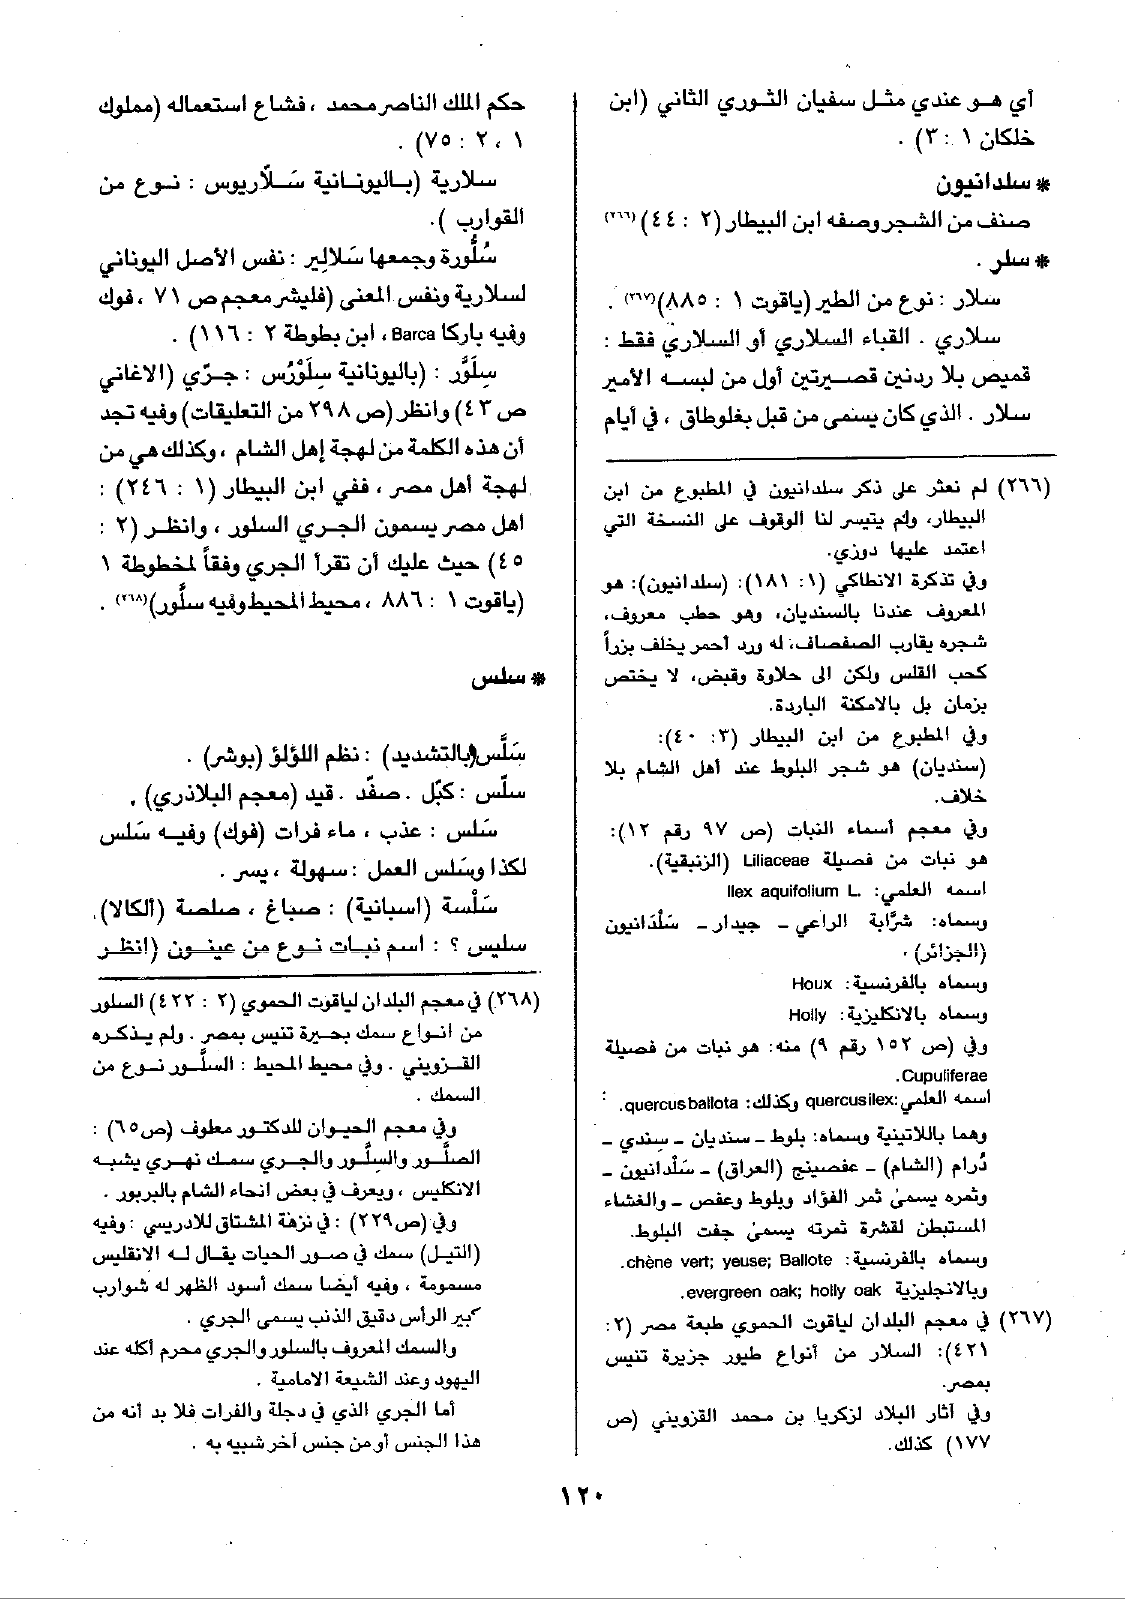 أي هو عندي مثل سفيان الثوري الثاني (ابن
خلكان ١ : ٣) .
* سلدانيون
صنف من الشجر وصفه ابن البيطار (٢ : ٤٤)(٢٦٦)
* سلر .
سلار : نوع من الطير (ياقوت ١ : ٨٨٥)(٢٦٧) .
سلاري . القباء السلاري أو السلاري فقط :
قميص بلا ردنين قصيرتين أول من لبسه الأمير
سلار . الذي كان يسمى من قبل بغلوطاق ، في أيام
(٢٦٦) لم نعثر على ذكر سلدانيون في المطبوع من ابن
البيطار، ولم يتيسر لنا الوقوف على النسخة التي
اعتمد عليها دوزي.
وفي تذكرة الانطاكي (١: ١٨١): (سلدانيون): هو
المعروف عندنا بالسنديان، وهو حطب معروف،
شجره يقارب الصفصاف، له ورد أحمر يخلف بزراً
كحب القلس ولكن الى حلاوة وقبض، لا يختص
بزمان بل بالامكنة الباردة.
وفي المطبوع من ابن البيطار (٣: ٤٠):
(سنديان) هو شجر البلوط عند أهل الشام بلا
خلاف.
وفي معجم أسماء النبات (ص ٩٧ رقم ١٢):
هو نبات من فصيلة Liliaceae (الزنبقية).
اسمه العلمي: Ilex aquifolium L.
وسماه: شرَّابة الراعي - جيدار - سَلْدَانيون
(الجزائر) .
وسماه بالفرنسية: Houx
وسماه بالانكليزية: Holly
وفي (ص ١٥٢ رقم ٩) منه: هو نبات من فصيلة
Cupuliferae.
اسمه العلمي: quercus ilex وكذلك: quercus ballota.
وهما باللاتينية وسماه: بلوط - سنديان - سِندي -
دُرام (الشام) - عفصينج (العراق) - سَلْدانيون -
وثمره يسمىٰ ثمر الفؤاد وبلوط وعفص - والغشاء
المستبطن لقشرة ثمرته يسمىٰ جفت البلوط.
وسماه بالفرنسية: chène vert; yeuse; Ballote.
وبالانجليزية evergreen oak; holly oak.
(٢٦٧) في معجم البلدان لياقوت الحموي طبعة مصر (٢:
٤٢١): السلار من أنواع طيور جزيرة تنيس
بمصر.
وفي آثار البلاد لزكريا بن محمد القزويني (ص
١٧٧) كذلك.
حكم الملك الناصر محمد ، فشاع استعماله (مملوك
١ ، ٢ : ٧٥) .
سلارية (باليونانية سَلّاريوس : نوع من
القوارب ).
سُلُّورة وجمعها سَلالِير : نفس الأصل اليوناني
لسلارية ونفس المعنى (فليشر معجم ص ٧١ ، فوك
وفيه باركا Barca ، ابن بطوطة ٢ : ١١٦) .
سِلَّوْر : (باليونانية سِلَوْرُس : جرّي (الاغاني
ص ٤٣) وانظر (ص ٢٩٨ من التعليقات) وفيه تجد
أن هذه الكلمة من لهجة إهل الشام ، وكذلك هي من
لهجة أهل مصر ، ففي ابن البيطار (١ : ٢٤٦) :
اهل مصر يسمون الجري السلور ، وانظر (٢ :
٤٥) حيث عليك أن تقرأ الجري وفقاً لمخطوطة ١
(ياقوت ١ : ٨٨٦ ، محيط المحيط وفيه سلُّور)(٢٦٨) .
* سلس
سَلَّس (بالتشديد) : نظم اللؤلؤ (بوشر) .
سلّس : كبّل . صفّد . قيد (معجم البلاذري) .
سَلس : عذب ، ماء فرات (فوك) وفيه سَلس
لكذا وسَلس العمل : سهولة ، يسر .
سَلْسة (اسبانية) : صباغ ، صلصة (ألكالا) .
سليس ؟ : اسم نبات نوع من عينون (انظر
(٢٦٨) في معجم البلدان لياقوت الحموي (٢ : ٤٢٢) السلور
من انواع سمك بحيرة تنيس بمصر . ولم يذكره
القزويني . وفي محيط المحيط : السلَّور نوع من
السمك .
وفي معجم الحيوان للدكتور معلوف (ص٦٥) :
الصلَّور والسلَّور والجري سمك نهري يشبه
الانكليس ، ويعرف في بعض انحاء الشام بالبربور .
وفي (ص ٢٢٩) : في نزهة المشتاق للادريسي : وفيه
(النيل) سمك في صور الحيات يقال له الانقليس
مسمومة ، وفيه أيضا سمك أسود الظهر له شوارب
كبير الرأس دقيق الذنب يسمى الجري .
والسمك المعروف بالسلور والجري محرم أكله عند
اليهود وعند الشيعة الامامية .
أما الجري الذي في دجلة والفرات فلا بد أنه من
هذا الجنس أو من جنس آخر شبيه به .
١٢٠